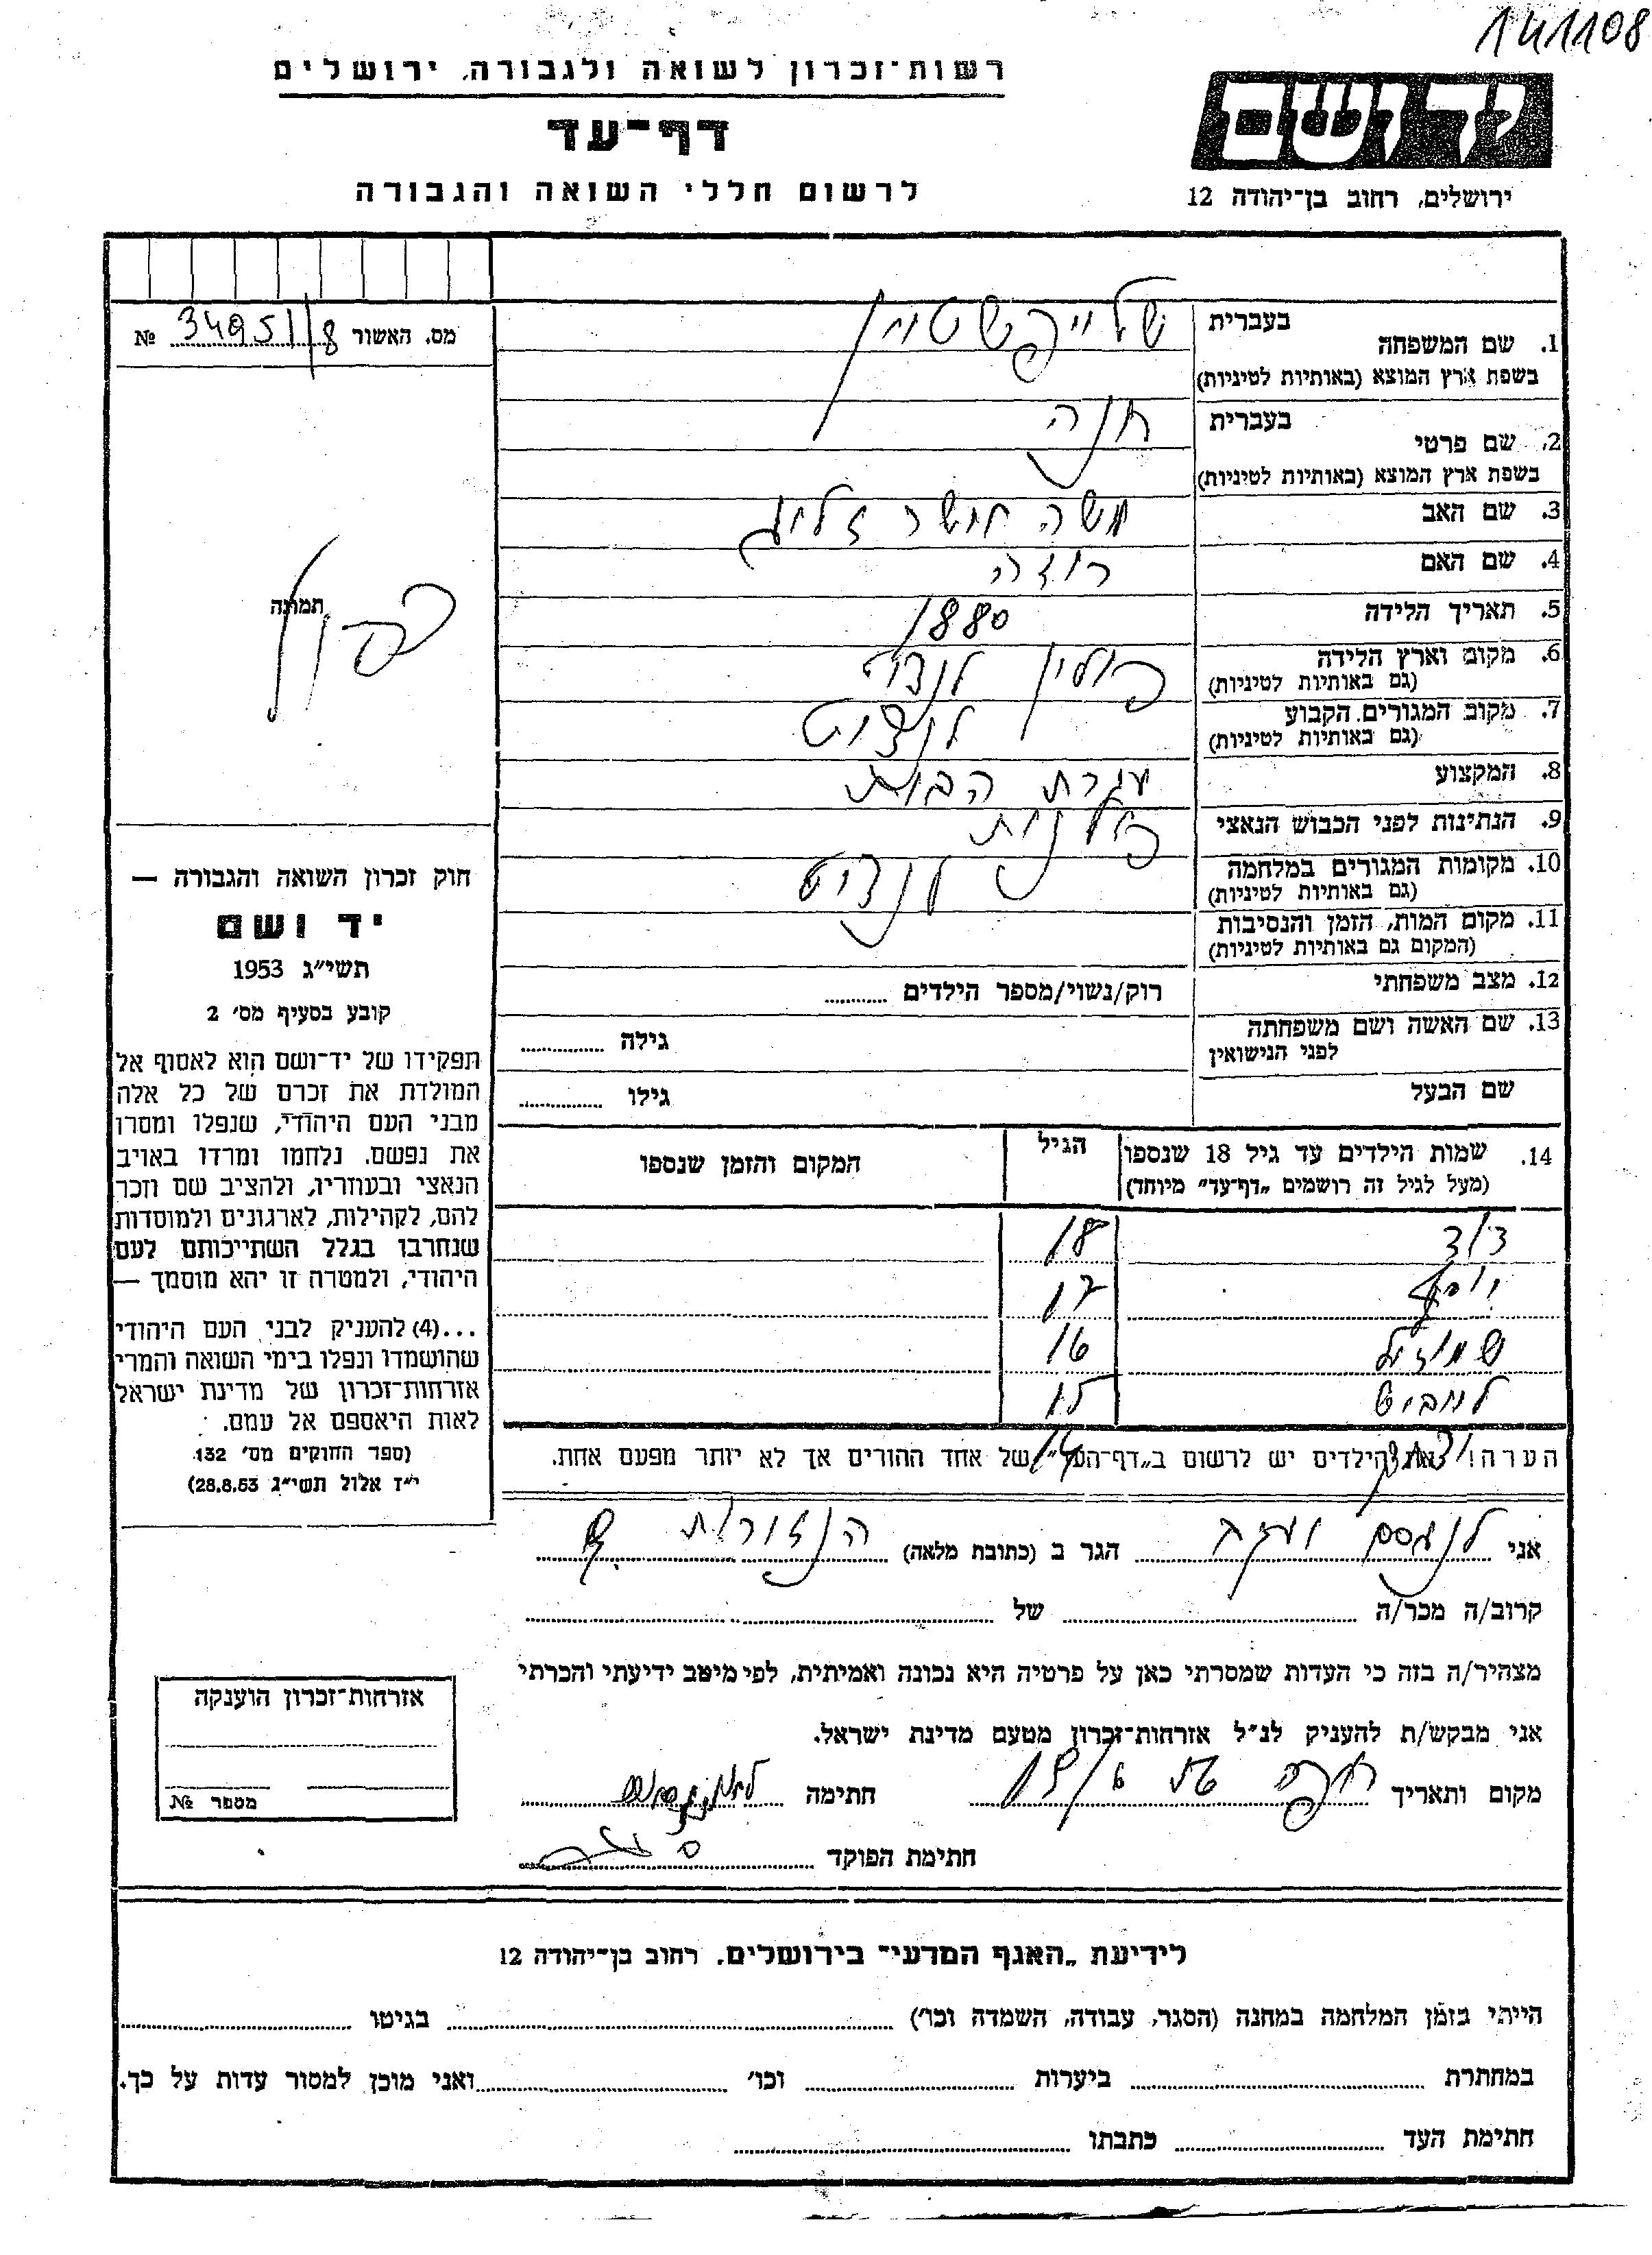 141108
רשות־זכרון לשואה ולגבורה, ירושלים
דף־עד
לרשום חללי השואה והגבורה
יד ושם
ירושלים, רחוב בן־יהודה 12
מס. האשור 34951/8 №
תמונה
חוק זכרון השואה והגבורה —
יד ושם
תשי״ג 1953
קובע בסעיף מס׳ 2
תפקידו של יד־ושם הוא לאסוף אל
המולדת את זכרם של כל אלה
מבני העם היהודי, שנפלו ומסרו
את נפשם. נלחמו ומרדו באויב
הנאצי ובעוזריו, ולהציב שם וזכר
להם, לקהילות, לארגונים ולמוסדות
שנחרבו בגלל השתייכותם לעם
היהודי, ולמטרה זו יהא מוסמך —
...(4) להעניק לבני העם היהודי
שהושמדו ונפלו בימי השואה והמרי
אזרחות־זכרון של מדינת ישראל
לאות היאספם אל עמם.
(ספר החוקים מס׳ 132
י״ז אלול תשי״ג 28.8.53)
1. שם המשפחה בעברית
בשפת ארץ המוצא (באותיות לטיניות)
2. שם פרטי בעברית חנה
בשפת ארץ המוצא (באותיות לטיניות)
3. שם האב משה זליג
4. שם האם רוזה
5. תאריך הלידה 1880
6. מקום וארץ הלידה פולין לנצוט
(גם באותיות לטיניות)
7. מקום המגורים הקבוע לנצוט
(גם באותיות לטיניות)
8. המקצוע עקרת הבית
9. הנתינות לפני הכבוש הנאצי פולנית
10. מקומות המגורים במלחמה לנצוט
(גם באותיות לטיניות)
11. מקום המות, הזמן והנסיבות
(המקום גם באותיות לטיניות)
12. מצב משפחתי רוק/נשוי/מספר הילדים
13. שם האשה ושם משפחתה גילה
לפני הנישואין
שם הבעל גילו
14. שמות הילדים עד גיל 18 שנספו הגיל המקום והזמן שנספו
(מעל לגיל זה רושמים „דף־עד״ מיוחד)
דוד 18
יוסף 17
16
15
הערה! את הילדים יש לרשום ב„דף־העד״ של אחד ההורים אך לא יותר מפעם אחת.
14
אני יעקב הגר ב (כתובת מלאה)
קרוב/ה מכר/ה של
מצהיר/ה בזה כי העדות שמסרתי כאן על פרטיה היא נכונה ואמיתית, לפי מיטב ידיעתי והכרתי
אני מבקש/ת להעניק לנ״ל אזרחות־זכרון מטעם מדינת ישראל.
מקום ותאריך חיפה חתימה
חתימת הפוקד
אזרחות־זכרון הוענקה
מספר №
לידיעת „האגף המדעי״ בירושלים. רחוב בן־יהודה 12
הייתי בזמן המלחמה במחנה (הסגר, עבודה, השמדה וכו׳) בגיטו
במחתרת ביערות וכו׳ ואני מוכן למסור עדות על כך.
חתימת העד כתבתו